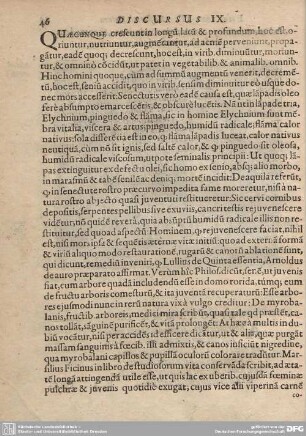 46 DISCURSUS IX.
QUÆCUNQUE crescunt in longū, latū & profundum, hoc est, o-
riuntur, nutriuntur, augmentantur, ad acmen perveniunt, propa-
gātur, eadē quoq; decrescunt, hoc est, in virib. diminuūtur, moriun-
tur, & omninò cōcidūt, ut patet in vegetabilib. & animalib. omnib.
Hinc homini quoque, cùm ad summū augmentū venerit, decremē-
tū, hoc est, senii accidit, quo in virib. sensim diminuitur eò usque do-
nec mors accesserit. Senectutis verò eadē causa est, quæ lāpadis oleo
ferè absumpto emarcescētis, & obscurè lucētis. Nā ut in lāpade tria,
Elychnium, pinguedo & flāma, sic in homine Elychnium sunt mē-
bra vitalia, viscera & artus; pinguedo, humidū radicale; flāma calor
nativus: sola differētia est in eo, q̃ flāma lāpadis luceat, calor nativus
neutiquā, cùm nō sit ignis, sed saltē calor, & q̃ pinguedo sit oleosa,
humidū radicale viscosum, utpote seminalis principii: Ut quoq; lā-
pas extinguitur ex defectu olei, sic homo ex senio, absq; alio morbo,
in marasmū & ab eo tandem mortē incidit: De aquila refertur,
q̃ in senectute rostro præcurvo impedita fame moreretur, nisi à na-
tura rostro abjecto quasi juventuti restitueretur: Sic cervi cornibus
depositis, serpentes pellibus sive exuviis, cancri testis rejuvenescere
vidētur: nō quidē reverà, quia absūptū humidū radicale illis non re-
stituitur, sed quoad aspectū: Hominem q̃ rejuvenescere faciat, nihil
est, nisi mors ipsa & sequētis æternæ vitæ initiū: quo ad externā formā
& virium aliquo modo restaurationē, rugarū & canorū ablationē sunt,
qui dicunt, remediū inventū, q̃ Lullius de Quinta essentia, Arnoldus
de auro præparato affirmat. Verùm hîc Philosoph9 senē, ut juvenis
fiat, cum arbore quadā includendū esse in domo rorida, ait; tum, eum
de fructu arboris comesturū, & ita juventā recuperaturū: Esse arbo-
res ejusmodi nunc in rerū natura vix à vulgo creditur: De myroba-
lanis, fructib. arboreis, medici mira scribūt, quasi tale qd præstēt, ca-
nos tollāt, sāguinē purificēt, & vitā prolongēt: At hæc à multis in du-
biū vocātur, nisi per accidēs id efficere dicātur, ut & alia, quæ purgāt
massam sanguinis à fæcib. illi admixtis, & canis inficiendo nigrorē,
qua myrobalani capillos & pupillā oculorū colorare traditur. Mar-
silius Ficinus in libro de studiosorum vita conservāda refert, ad æta-
tē longā attingendā utile esse, ut quis lac ex uberib. cujusdā fœminæ
puschræ & juvenis quotidiè exugat, cujus vice alii viperinā carnē
co-